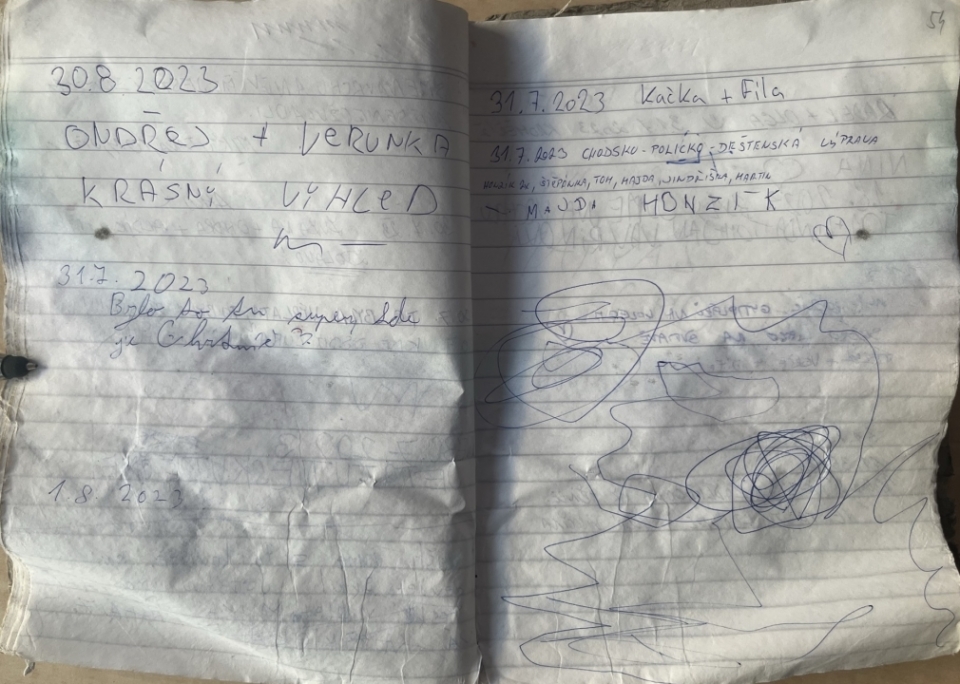 30.8 2023
ONDŘEJ + VERUNKA
KRÁSNÝ VÍHLED
31.7. 2023
Bylo to tu super, kde
je ?
1.8. 2023
54
31.7.2023 Kačka + Fíla
31.7.2023 CHODSKO-POLÍČKO-DEŠTENSKÁ VÝPRAVA
ŠTĚPÁNKA, TOM, MAJDA, JINDŘIŠKA, MARTIN
HONZÍK